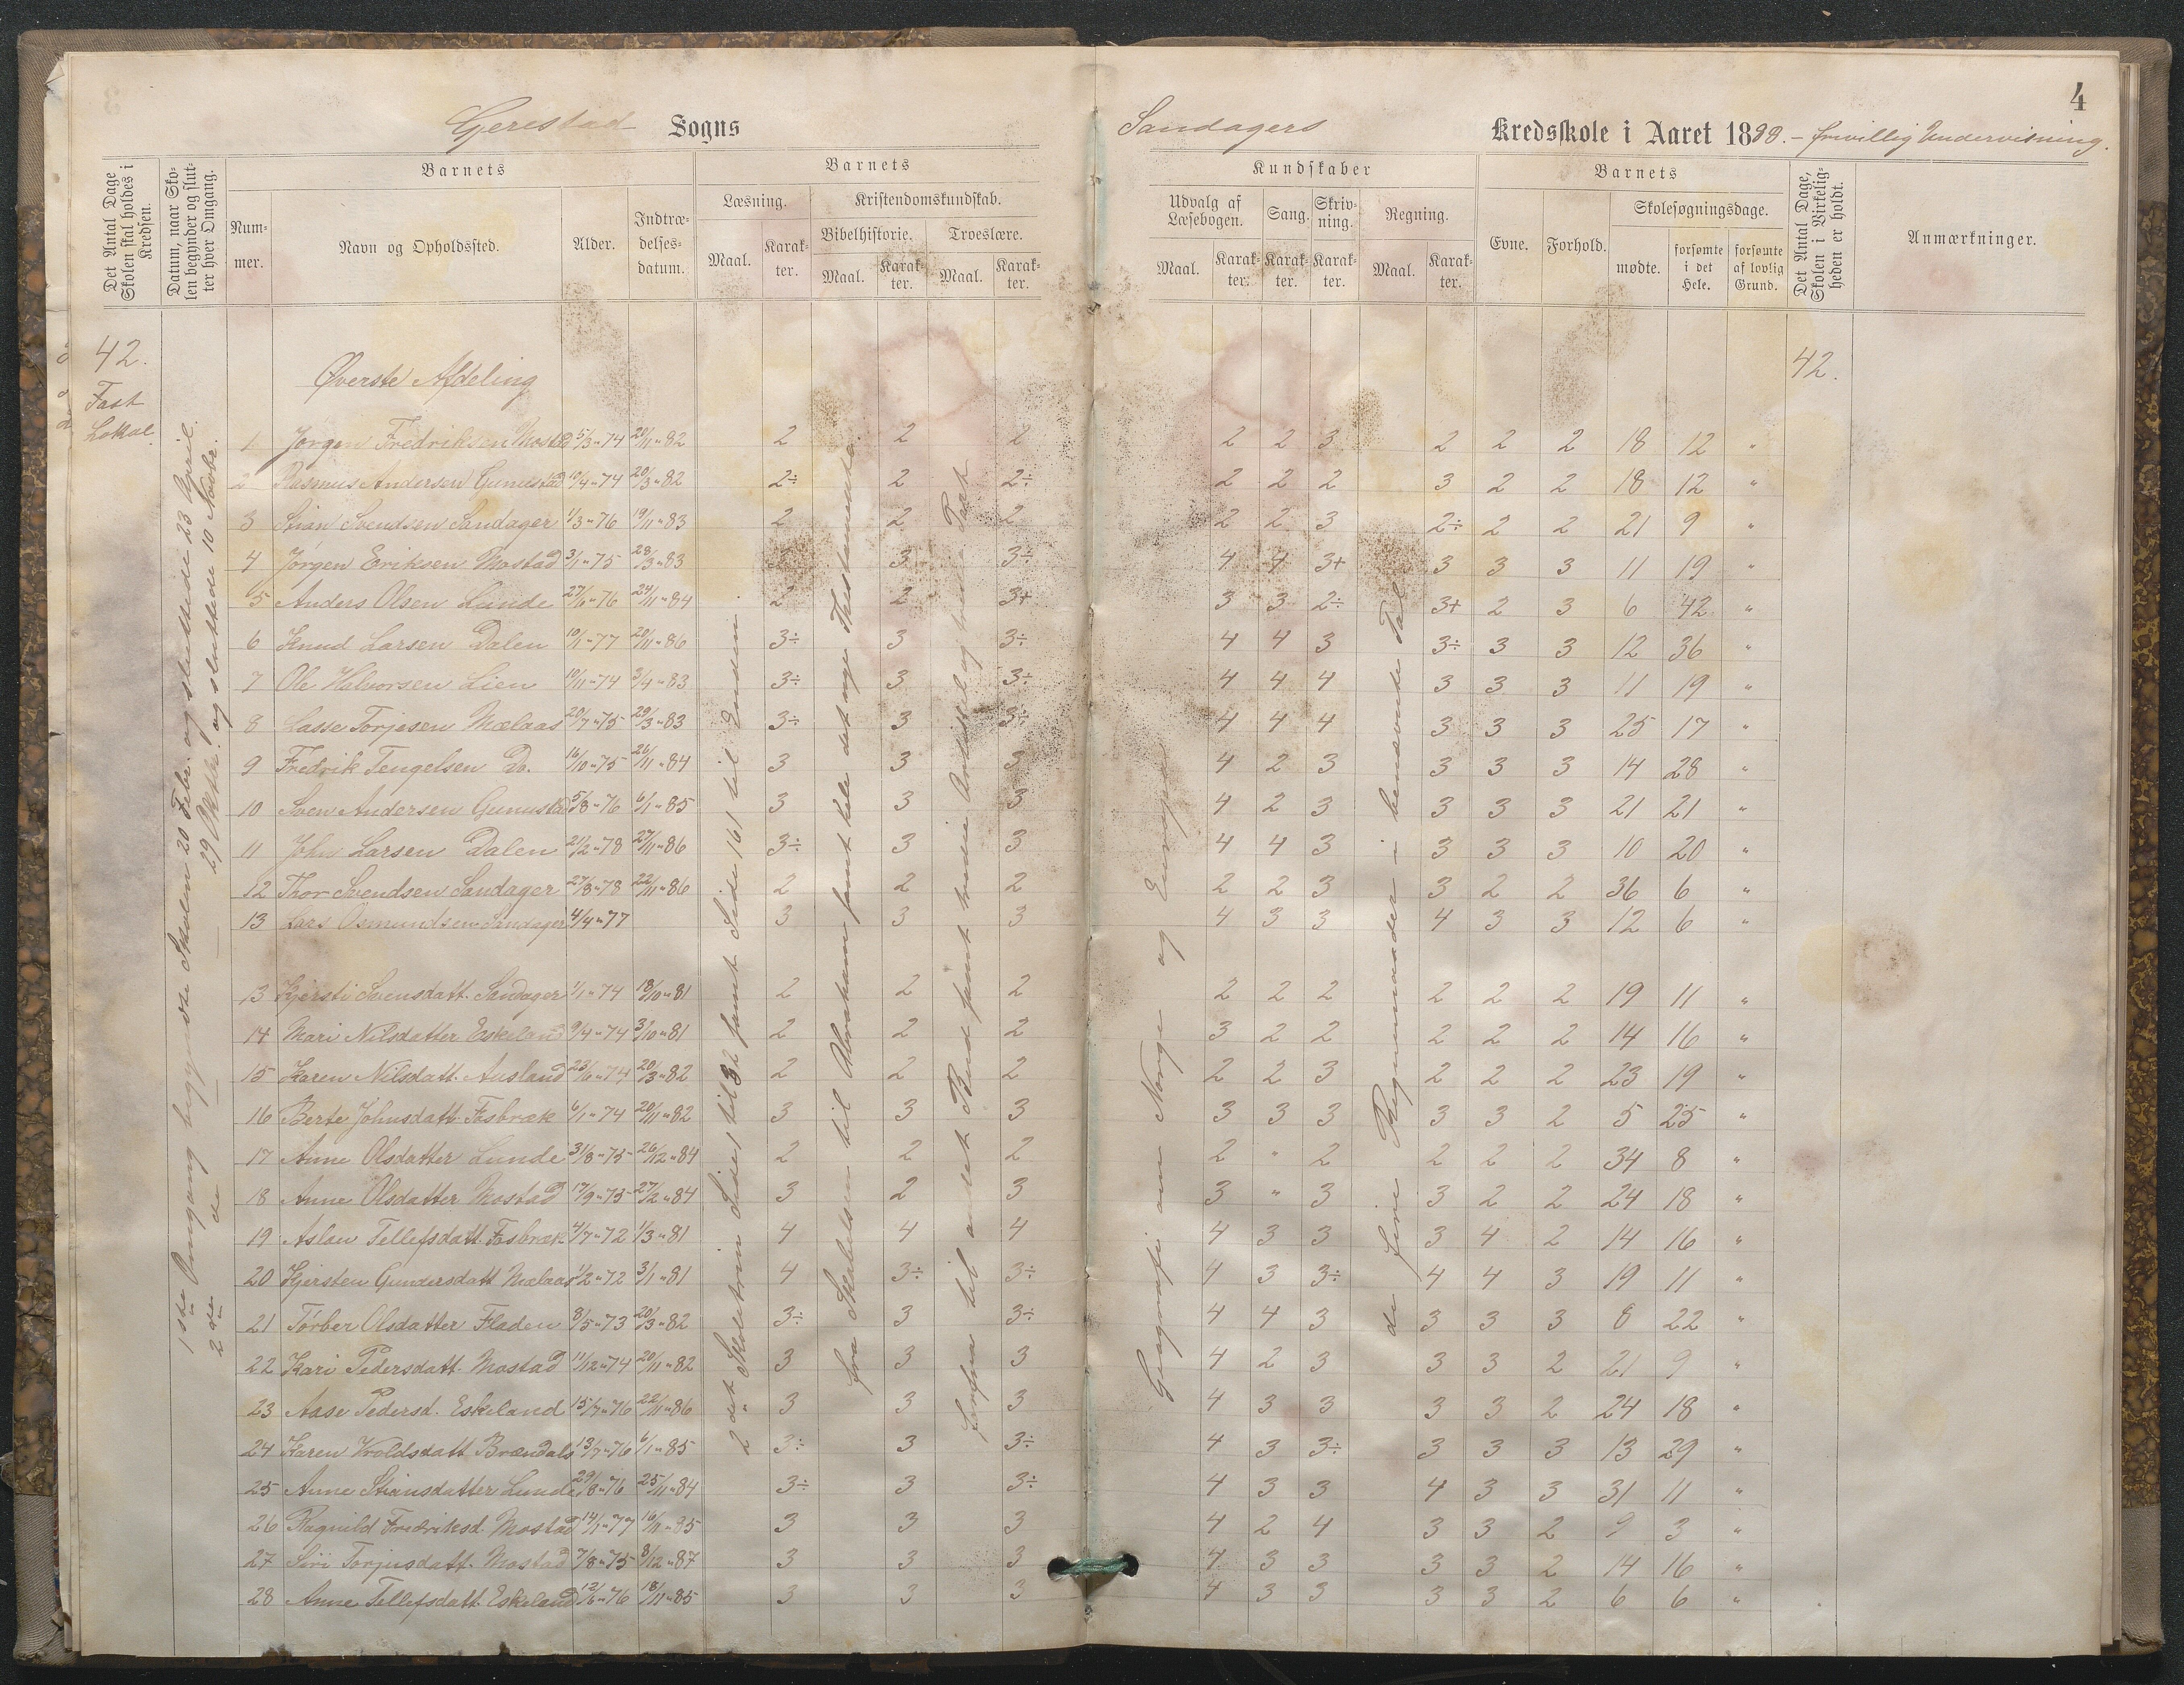 4
Gjerestad Sogns Sandagers Kredsskole i Aaret 1888. – frivillig Undervisning.
Det Antal Dage Skolen skal holdes i Kredsen.
Datum, naar Skolen begynder og slutter hver Omgang.
Barnets
Nummer.
Navn og Opholdssted.
Alder.
Indtrædelsesdatum.
Barnets
Læsning.
Maal.
Karakter.
Kristendomskundskab.
Bibelhistorie.
Maal.
Karakter.
Troeslære.
Maal.
Karakter.
Kundskaber
Udvalg af Læsebogen.
Maal.
Karakter.
Sang.
Karakter.
Skrivning.
Karakter.
Regning.
Maal.
Karakter.
Barnets
Evne.
Forhold.
Skolesøgningsdage.
mødte.
forsømte i det Hele.
forsømte af lovlig Grund.
Det Antal Dage, Skolen i Virkeligheden er holdt.
Anmærkninger.
42.
Fast
Lokal.
1ste Omgang begyndte Skolen 20 Febr. og sluttede 23 April.
2den do 29 Oktbr. og sluttede 10 Novbr.
Øverste Afdeling
42.
1 Jørgen Fredriksen Mostad 5/3 "74 20/11 "82 2 2 2 2 2 3 2 2 2 18 12 "
2 Rasmus Andersen Gumestad 10/4 "74 20/3 "82 2÷ 2 2÷ 2 2 2 3 2 2 18 12 "
3 Stian Svendsen Sandager 1/3 "76 19/11 "83 2 2 2 2 2 3 2÷ 2 2 21 9 "
4 Jørgen Eriksen Mostad 3/1 "75 28/3 "83 3 3÷ 4 4 3+ 3 3 3 11 19 "
5 Anders Olsen Lunde 27/6 "76 24/11 "84 2 2 3+ 3 3 2÷ 3+ 2 3 6 42 "
6 Knud Larsen Dalen 10/1 "77 20/11 "86 3÷ 3 3÷ 4 4 3 3÷ 3 3 12 36 "
7 Ole Halvorsen Lien 10/11 "74 3/4 "83 3÷ 3 3÷ 4 4 4 3 3 3 11 19 "
8 Lasse Torjesen Mælaas 20/7 "75 29/3 "83 3÷ 3 3÷ 4 4 4 3 3 3 25 17 "
9 Fredrik Tengelsen Do. 16/10 "75 26/11 "84 3 3 3 4 2 3 3 3 3 14 28 "
10 Sven Andersen Gumestad 5/8 "76 6/1 "85 3 3 3 4 2 3 3 3 3 21 21 "
11 John Larsen Dalen 21/2 "78 27/11 "86 3÷ 3 3 4 4 3 3 3 3 10 20 "
12 Thor Svendsen Sandager 27/8 "78 22/11 "86 2 2 2 2 2 3 3 2 2 36 6 "
13 Lars Osmundsen Sandager 4/4 "77 3 3 3 4 3 3 4 3 3 12 6 "
13 Kjersti Svensdatt. Sandager 1/1 "74 18/10 "81 2 2 2 2 2 2 2 2 2 19 11 "
14 Mari Nilsdatter Eskeland 9/4 "74 3/10 "81 2 2 2 3 2 2 2 2 2 14 16 "
15 Karen Nilsdatt. Ausland 23/6 "74 20/3 "82 2 2 2 2 2 3 2 2 2 23 19 "
16 Berte Johnsdatt. Fosbræk 6/1 "74 20/11 "82 3 3 3 3 3 3 3 3 2 5 25 "
17 Anne Olsdatter Lunde 31/8 "75 26/12 "84 2 2 2 2 " 2 2 2 2 34 8 "
18 Anne Olsdatter Mostad 17/9 "75 27/2 "84 3 2 3 3 " 3 3 2 2 24 18 "
19 Aslau Tellefsdatt. Fosbræk 4/7 "72 1/3 "81 4 4 4 4 3 3 3 4 2 14 16 "
20 Kjersten Gundersdatt Mælaas 1/2 "72 3/1 "81 4 3÷ 3÷ 4 3 3÷ 4 4 3 19 11 "
21 Torber Olsdatter Fladen 8/5 "73 20/3 "82 3÷ 3 3÷ 4 4 3 3 3 3 8 22 "
22 Kari Pedersdatt. Mostad 11/12 "74 20/11 "82 3 3 3 4 2 3 3 3 2 21 9 "
23 Aase Pedersd. Eskeland 15/7 "76 22/11 "86 3 3 3 4 3 3 3 3 2 24 18 "
24 Karen Wroldsdatt Brændals 13/7 "76 6/1 "85 3÷ 3 3÷ 4 3 3÷ 3 3 3 13 29 "
25 Anne Stiansdatter Lunde 29/8 "76 25/11 "84 3÷ 3 3÷ 4 3 3 4 3 3 31 11 "
26 Ragnild Fredriksd. Mostad 14/1 "77 16/11 "85 3 3 3 4 2 4 3 3 2 9 3 "
27 Siri Torjusdatt. Mostad 7/8 "75 8/12 "87 3 3 3 4 3 3 3 3 2 14 16 "
28 Anne Tellefsdatt. Eskeland 12/6 "76 18/11 "85 3 3 3 4 3 3 3 3 2 6 6 "
2det Skoletrin Side 1 til 32 samt Side 161 til Enden.
fra Skabelsen til Abraham samt hele det nye Testamente.
forfra til andet Bud samt tredie Artikel og tredie Part
Geografi om Norge og Europa
de fire Regningsarter i benævnte Tal